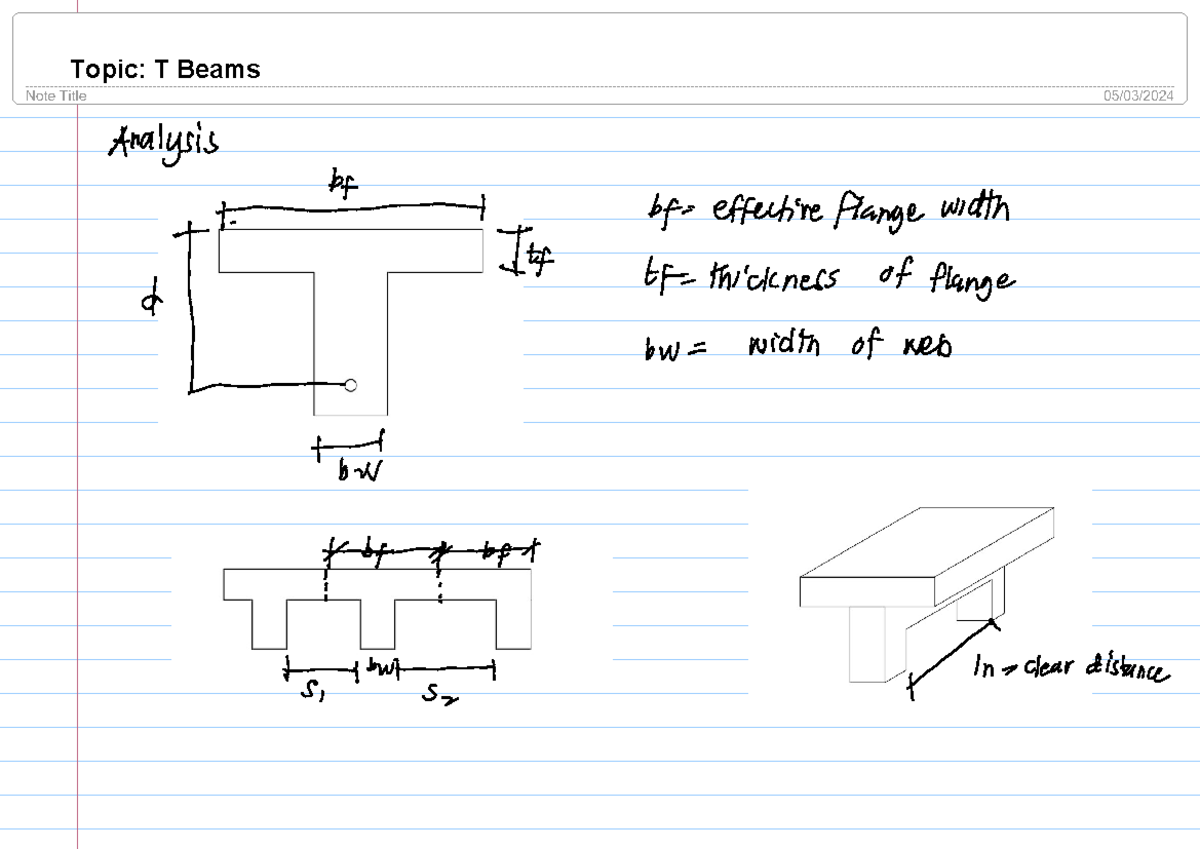 Topic: T Beams
Note Title
05/03/2024
Analysis
bf
bf = effective flange width
tf
d
tf = thickness of flange
bw = width of web
bw
bf bf
bw
S1 S2
ln → clear distance